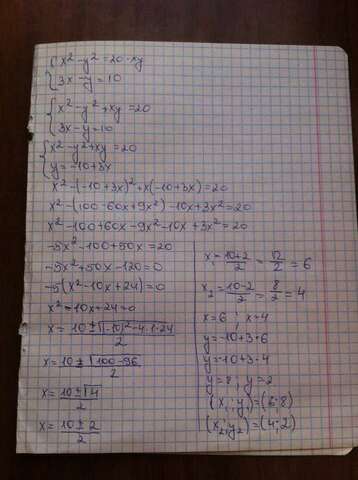 {x²-y²=20-xy
{3x-y=10
{x²-y²+xy=20
{3x-y=10
{x²-y²+xy=20
{y=-10+3x
x²-(-10+3x)²+x(-10+3x)=20
x²-(100-60x+9x²)-10x+3x²=20
x²-100+60x-9x²-10x+3x²=20
-5x²-100+50x=20
-5x²+50x-120=0
-5(x²-10x+24)=0
x²-10x+24=0
x=10±√(-10)²-4·1·24/2
x=10±√100-96/2
x=10±√4/2
x=10±2/2
x₁=10+2/2=12/2=6
x₂=10-2/2=8/2=4
x=6; x=4
y=-10+3·6
y=-10+3·4
y=8; y=2
(x₁;y₁)=(6;8)
(x₂;y₂)=(4;2)